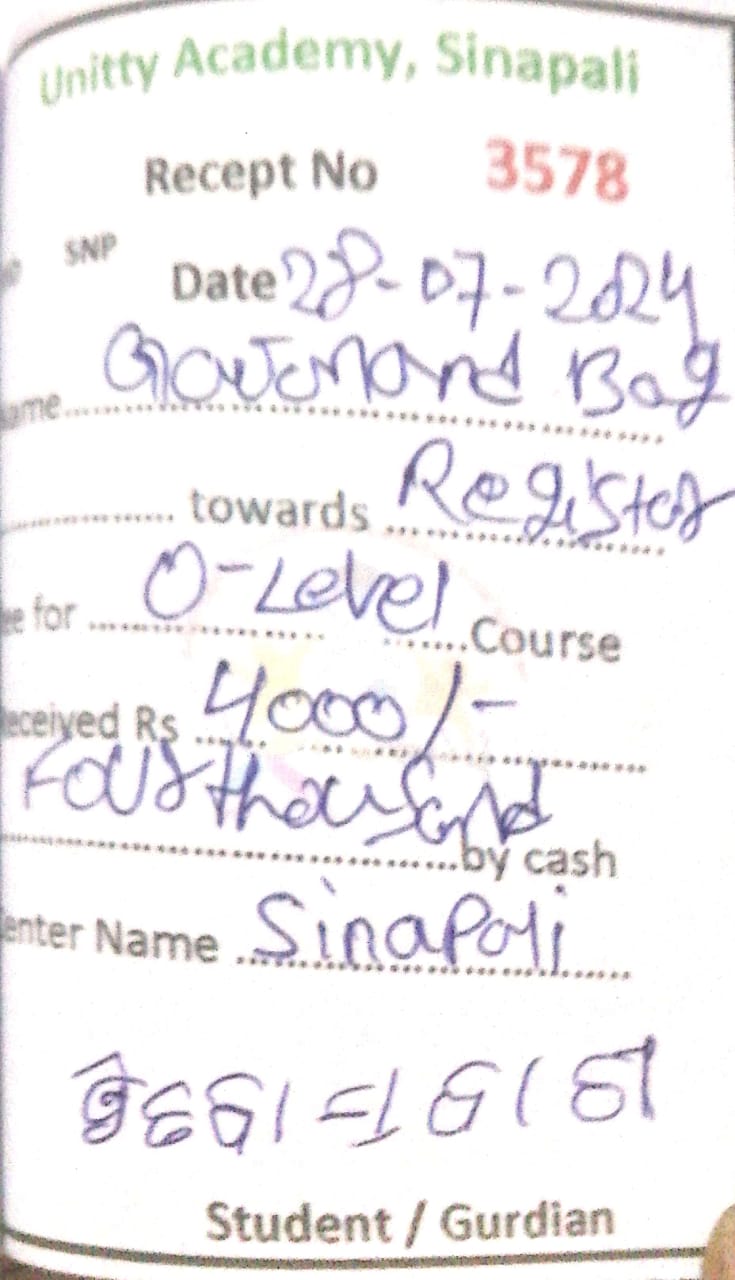 Unitty Academy, Sinapali
Recept No 3578
SNP
Date 28-07-2024
ame.......... Bag
.......... towards .......... Register
ee for .......... O-Level .......... Course
eceived Rs .......... 4000/-
Four thousand
..........by cash
enter Name .......... Sinapali
Student / Gurdian